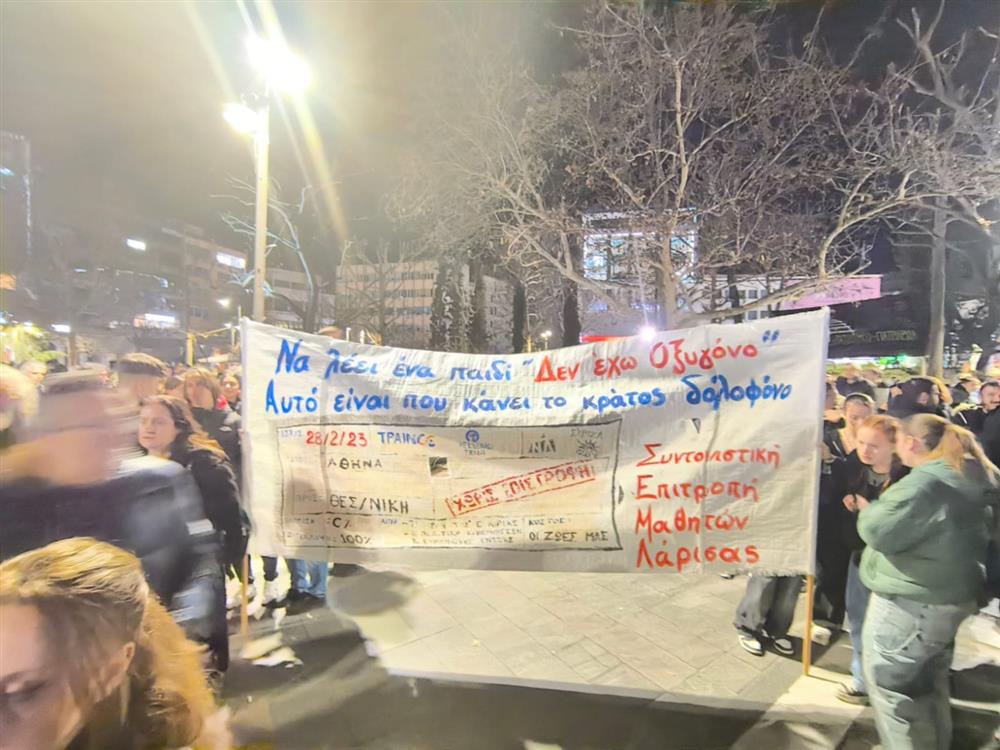 Να λέει ένα παιδί "Δεν έχω Οξυγόνο"
Αυτό είναι που κάνει το κράτος δολοφόνο
28/2/23 ΤΡΑΙΝΟ
ΑΘΗΝΑ
ΘΕΣ/ΝΙΚΗ
ΧΩΡΙΣ ΕΠΙΣΤΡΟΦΗ
100%
ΚΟΣΤΟΣ:
ΟΙ ΖΩΕΣ ΜΑΣ
Συντονιστική
Επιτροπή
Μαθητών
Λάρισας